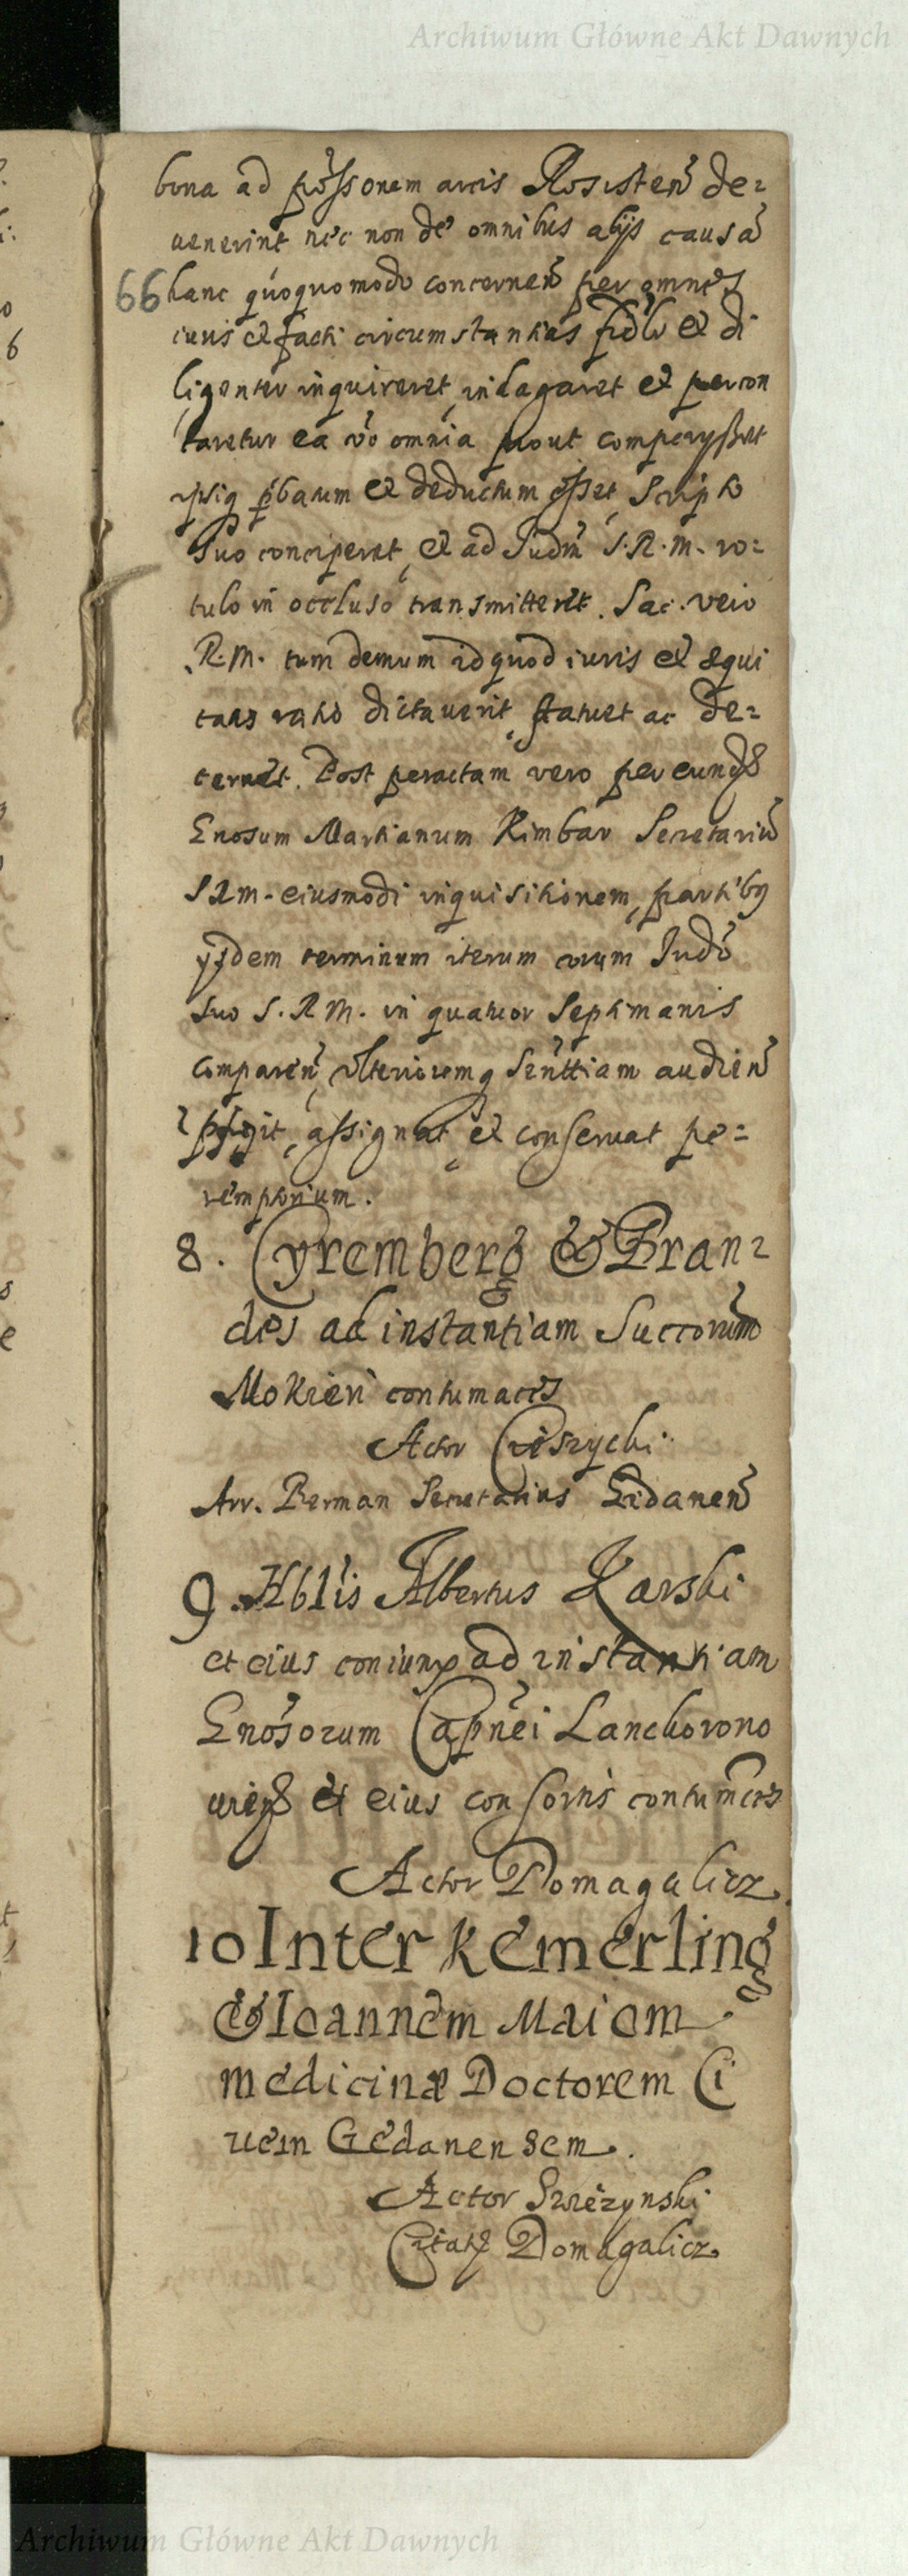 Archiwum Główne Akt Dawnych
bona ad possonem arcis Rosisten de=
uenerint nec non de omnibus alijs causa
66 hanc quoquomodo concernen per omnes
iuris et facti circumstantias fidlr et di
ligenter inquireret, indagaret et percon
taretur ea vo omnia prout comperysset
ipsiq pbatum et deductum esset, scripto
suo conciperet, et ad Judm S.R.M. ro=
tulo in occluso transmitteret. Sac. vero
R.M. tum demum id quod iuris et æqui
tatis ratio dictauerit, statuet ac de=
cernet. Post peractam vero per eund
Gnosum Martianum Rimbar Secretariu
SRM. eiusmodi inquisitionem, partibq
ysdem terminum iterum coram Judo
suo S.R.M. in quatuor septimanis
comparen, vlterioremq senttiam audien
pfigit, assignat et conseruat pe=
remptorium.
8. Cyremberg & Bran=
des ad instantiam Succorum
Mokrien contumaces
Actor Ciszycki
Arr. Berman Secretarius Gedanen
9. Nblis Albertus Karski
et eius coniunx ad instantiam
Gnosorum Capnei Lanckorono
et eius consortis contumces
Actor Domagalicz.
10 Inter Kemerling
& Ioannem Maiom
medicinæ Doctorem Ci
uem Gedanensem.
Actor Swiezynski
Citatq Domagalicz
Archiwum Główne Akt Dawnych